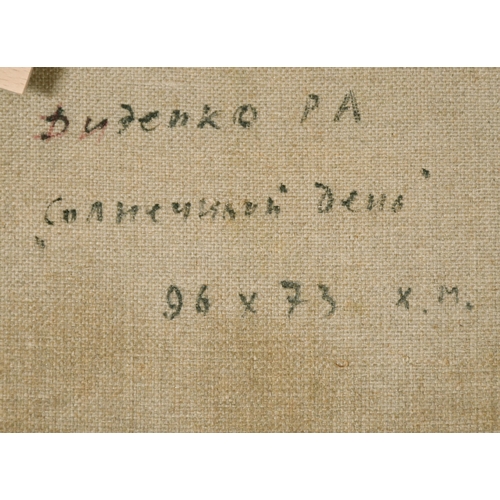 Диденко РА
"Солнечный день"
96 х 73 х.м.